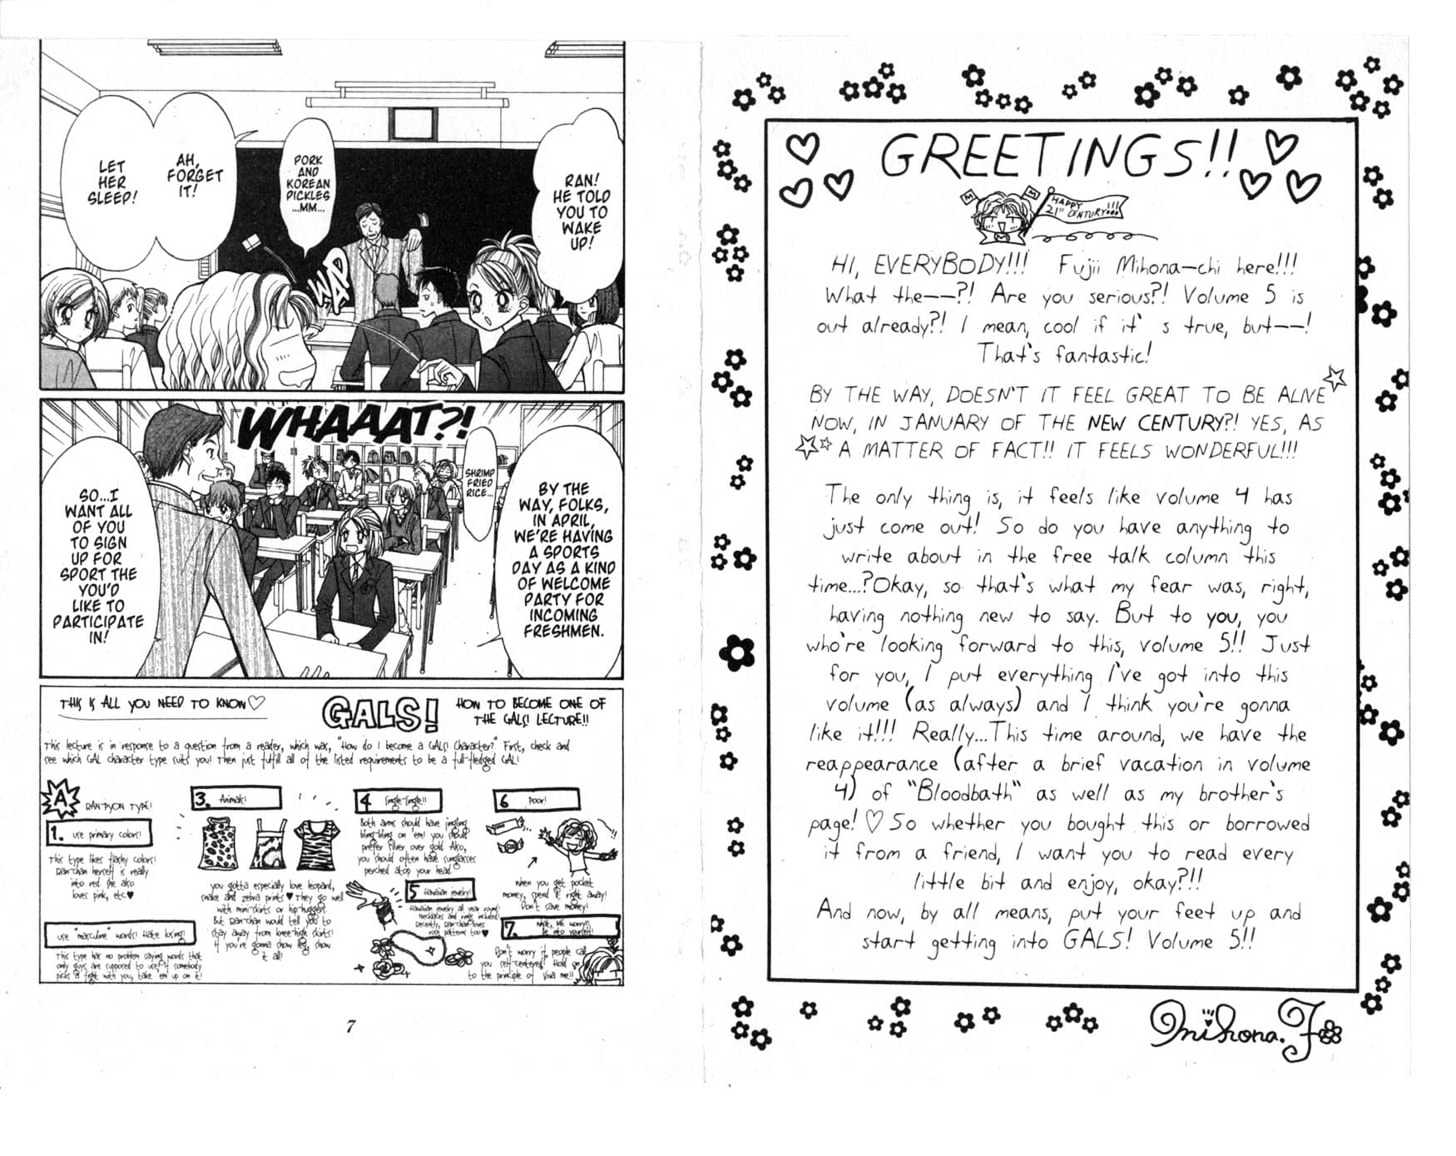 RAN!
HE TOLD
YOU TO
WAKE
UP!
PORK
AND
KOREAN
PICKLES
...MM...
AH,
FORGET
IT!
LET
HER
SLEEP!
WAP
WHAAAT?!
BY THE
WAY, FOLKS,
IN APRIL,
WE'RE HAVING
A SPORTS
DAY AS A KIND
OF WELCOME
PARTY FOR
INCOMING
FRESHMEN.
SHRIMP
FRIED
RICE...
SO...I
WANT ALL
OF YOU
TO SIGN
UP FOR
SPORT THE
YOU'D
LIKE TO
PARTICIPATE
IN!
THIS IS ALL YOU NEED TO KNOW♡
GALS!
HOW TO BECOME ONE OF
THE GALS! LECTURE!!
This lecture is in response to a question from a reader, which was, "How do I become a GALS! Character?" First, check and
see which GAL character type suits you! Then just fulfill all of the listed requirements to be a full-fledged GAL!
A
RAN-PYON TYPE!
1. use primary colors!
This type likes flashy colors!
Ran-chan herself is really
into red. She also
loves pink, etc.♥
use "masculine" words! Hate losing!
This type has no problem saying words that
only guys are supposed to use! If somebody
picks a fight with you, take 'em up on it!
3. Animal!
you gotta especially love leopard,
snake and zebra prints♥They go well
with mini-skirts or hip-huggers!
But Ran-chan would tell you to
stay away from knee-high skirts!
If you're gonna show leg, show
it all!
4 Jingle-Jingle!!
Both arms should have jingling
bling-bling on 'em! you should
prefer silver over gold. Also,
you should often have sunglasses
perched atop your head.
5 Hawaiian jewelry!
Hawaiian jewelry all year round,
necklaces and rings included!
Recently, Ran-chan loves
6 Poor!
when you get pocket
money, spend it right away!
Don't save money!
7.
Don't worry if people call
you self-centered! Hold on
to the principle of "Viva me!!"
7
GREETINGS!!
HAPPY
21ST CENTURY!!!
HI, EVERYBODY!!! Fujii Mihona-chi here!!!
What the--?! Are you serious?! Volume 5 is
out already?! I mean, cool if it's true, but--!
That's fantastic!
BY THE WAY, DOESN'T IT FEEL GREAT TO BE ALIVE
NOW, IN JANUARY OF THE NEW CENTURY?! YES, AS
A MATTER OF FACT!! IT FEELS WONDERFUL!!!
The only thing is, it feels like volume 4 has
just come out! So do you have anything to
write about in the free talk column this
time...?Okay, so that's what my fear was, right,
having nothing new to say. But to you, you
who're looking forward to this, volume 5!! Just
for you, I put everything I've got into this
volume (as always) and I think you're gonna
like it!!! Really...This time around, we have the
reappearance (after a brief vacation in volume
4) of "Bloodbath" as well as my brother's
page! ♡ So whether you bought this or borrowed
it from a friend, I want you to read every
little bit and enjoy, okay?!!
And now, by all means, put your feet up and
start getting into GALS! Volume 5!!
Mihona. F